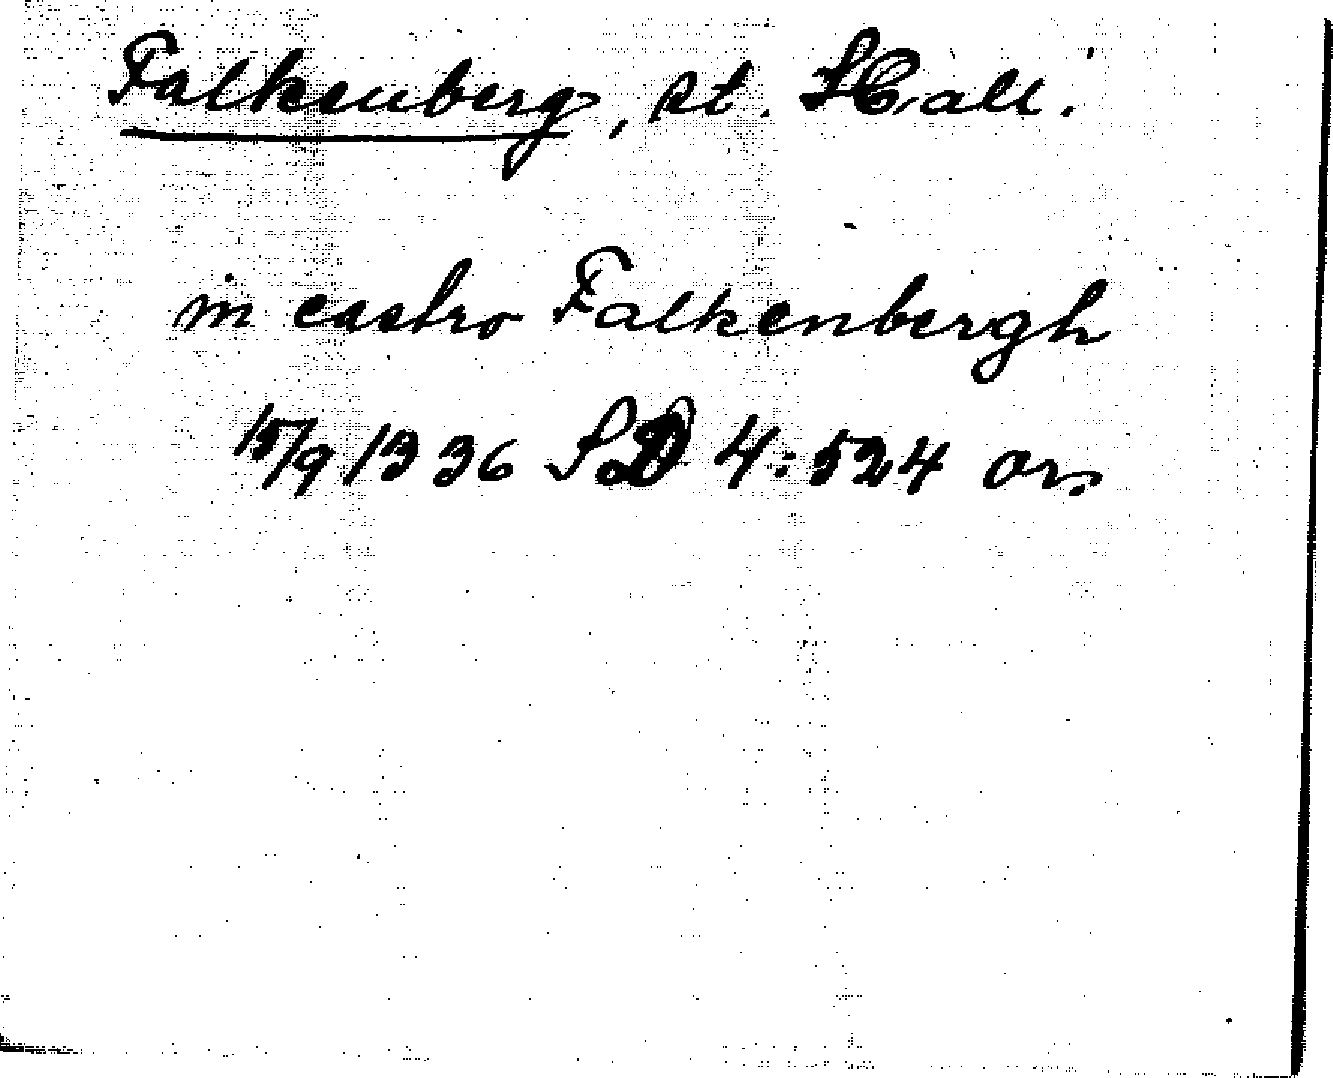 Falkenberg, st. Hall.
in castro Falkenbergh
15/9 1336 SD 4:524 or